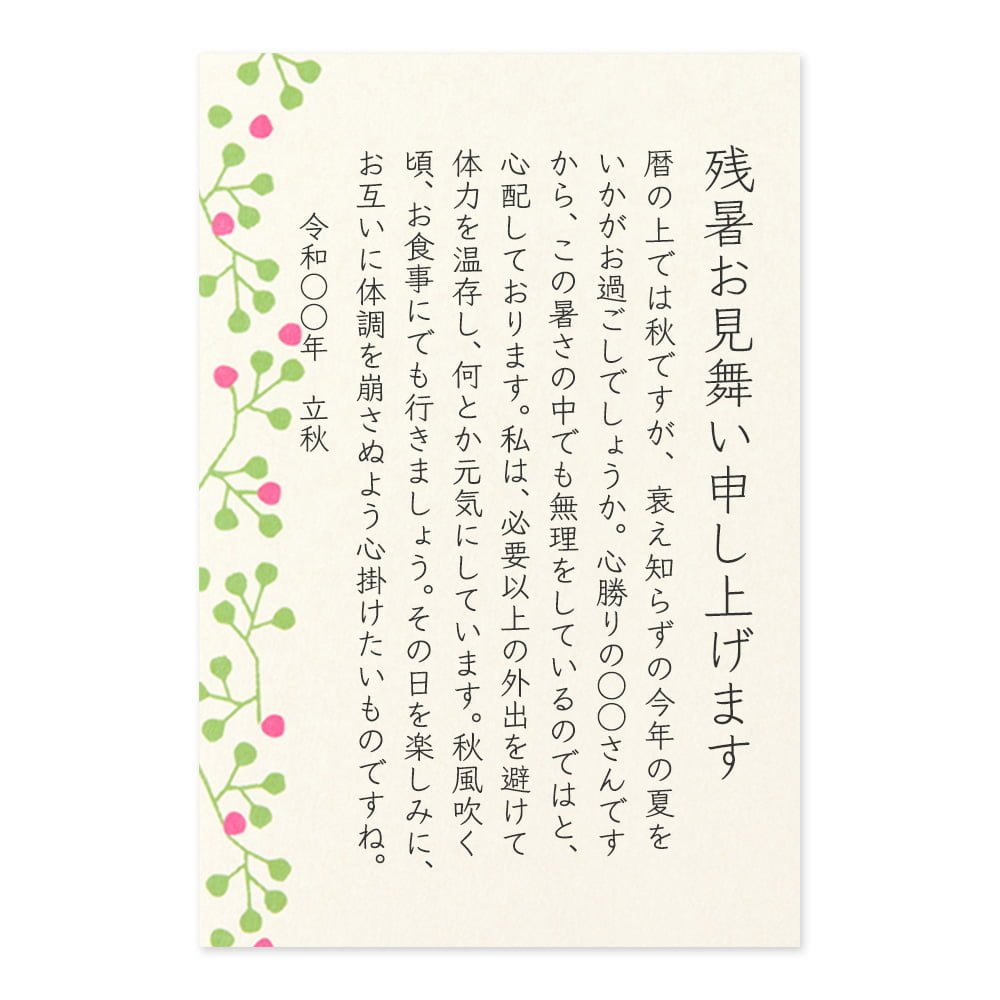 残暑お見舞い申し上げます
暦の上では秋ですが、衰え知らずの今年の夏を
いかがお過ごしでしょうか。心勝りの〇〇さんです
から、この暑さの中でも無理をしているのではと、
心配しております。私は、必要以上の外出を避けて
体力を温存し、何とか元気にしています。秋風吹く
頃、お食事にでも行きましょう。その日を楽しみに、
お互いに体調を崩さぬよう心掛けたいものですね。
令和〇〇年　立秋